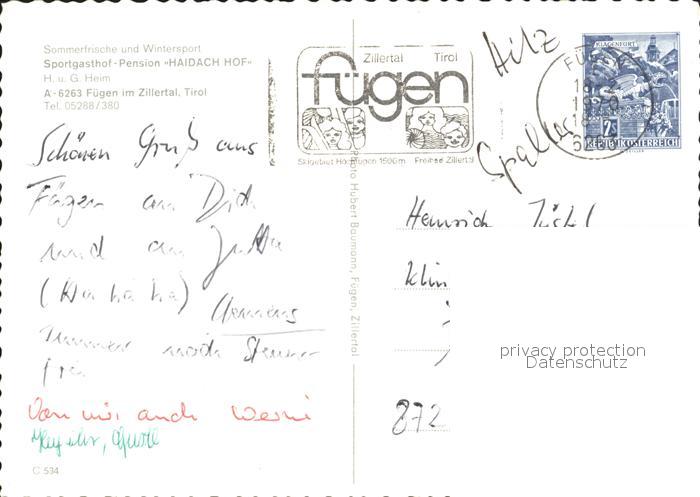 Sommerfrische und Wintersport
Sportgasthof-Pension »HAIDACH HOF«
H. u. G. Heim
A-6263 Fügen im Zillertal, Tirol
Tel. 05288/380
Zillertal Tirol
fügen
Skigebiet Hochfügen 1500m Freibad Zillertal
Hitz
KLAGENFURT
2S
REPUBLIK ÖSTERREICH
Schönen Gruß aus
Fügen an Dich
und an Jutta
(Ha ha ha)
Clemens
Immer noch
frei
Von mir auch Werni
C 534
Foto Hubert Baumann, Fügen, Zillertal
Heinrich
Klin
872
privacy protection
Datenschutz